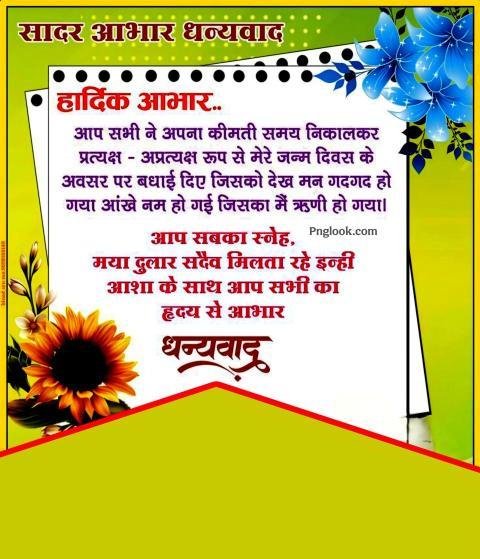 सादर आभार धन्यवाद
हार्दिक आभार..
आप सभी ने अपना कीमती समय निकालकर
प्रत्यक्ष - अप्रत्यक्ष रूप से मेरे जन्म दिवस के
अवसर पर बधाई दिए जिसको देख मन गदगद हो
गया आंखे नम हो गई जिसका मैं ऋणी हो गया।
आप सबका स्नेह,
Pnglook.com
मया दुलार सदैव मिलता रहे इन्ही
आशा के साथ आप सभी का
हृदय से आभार
धन्यवाद